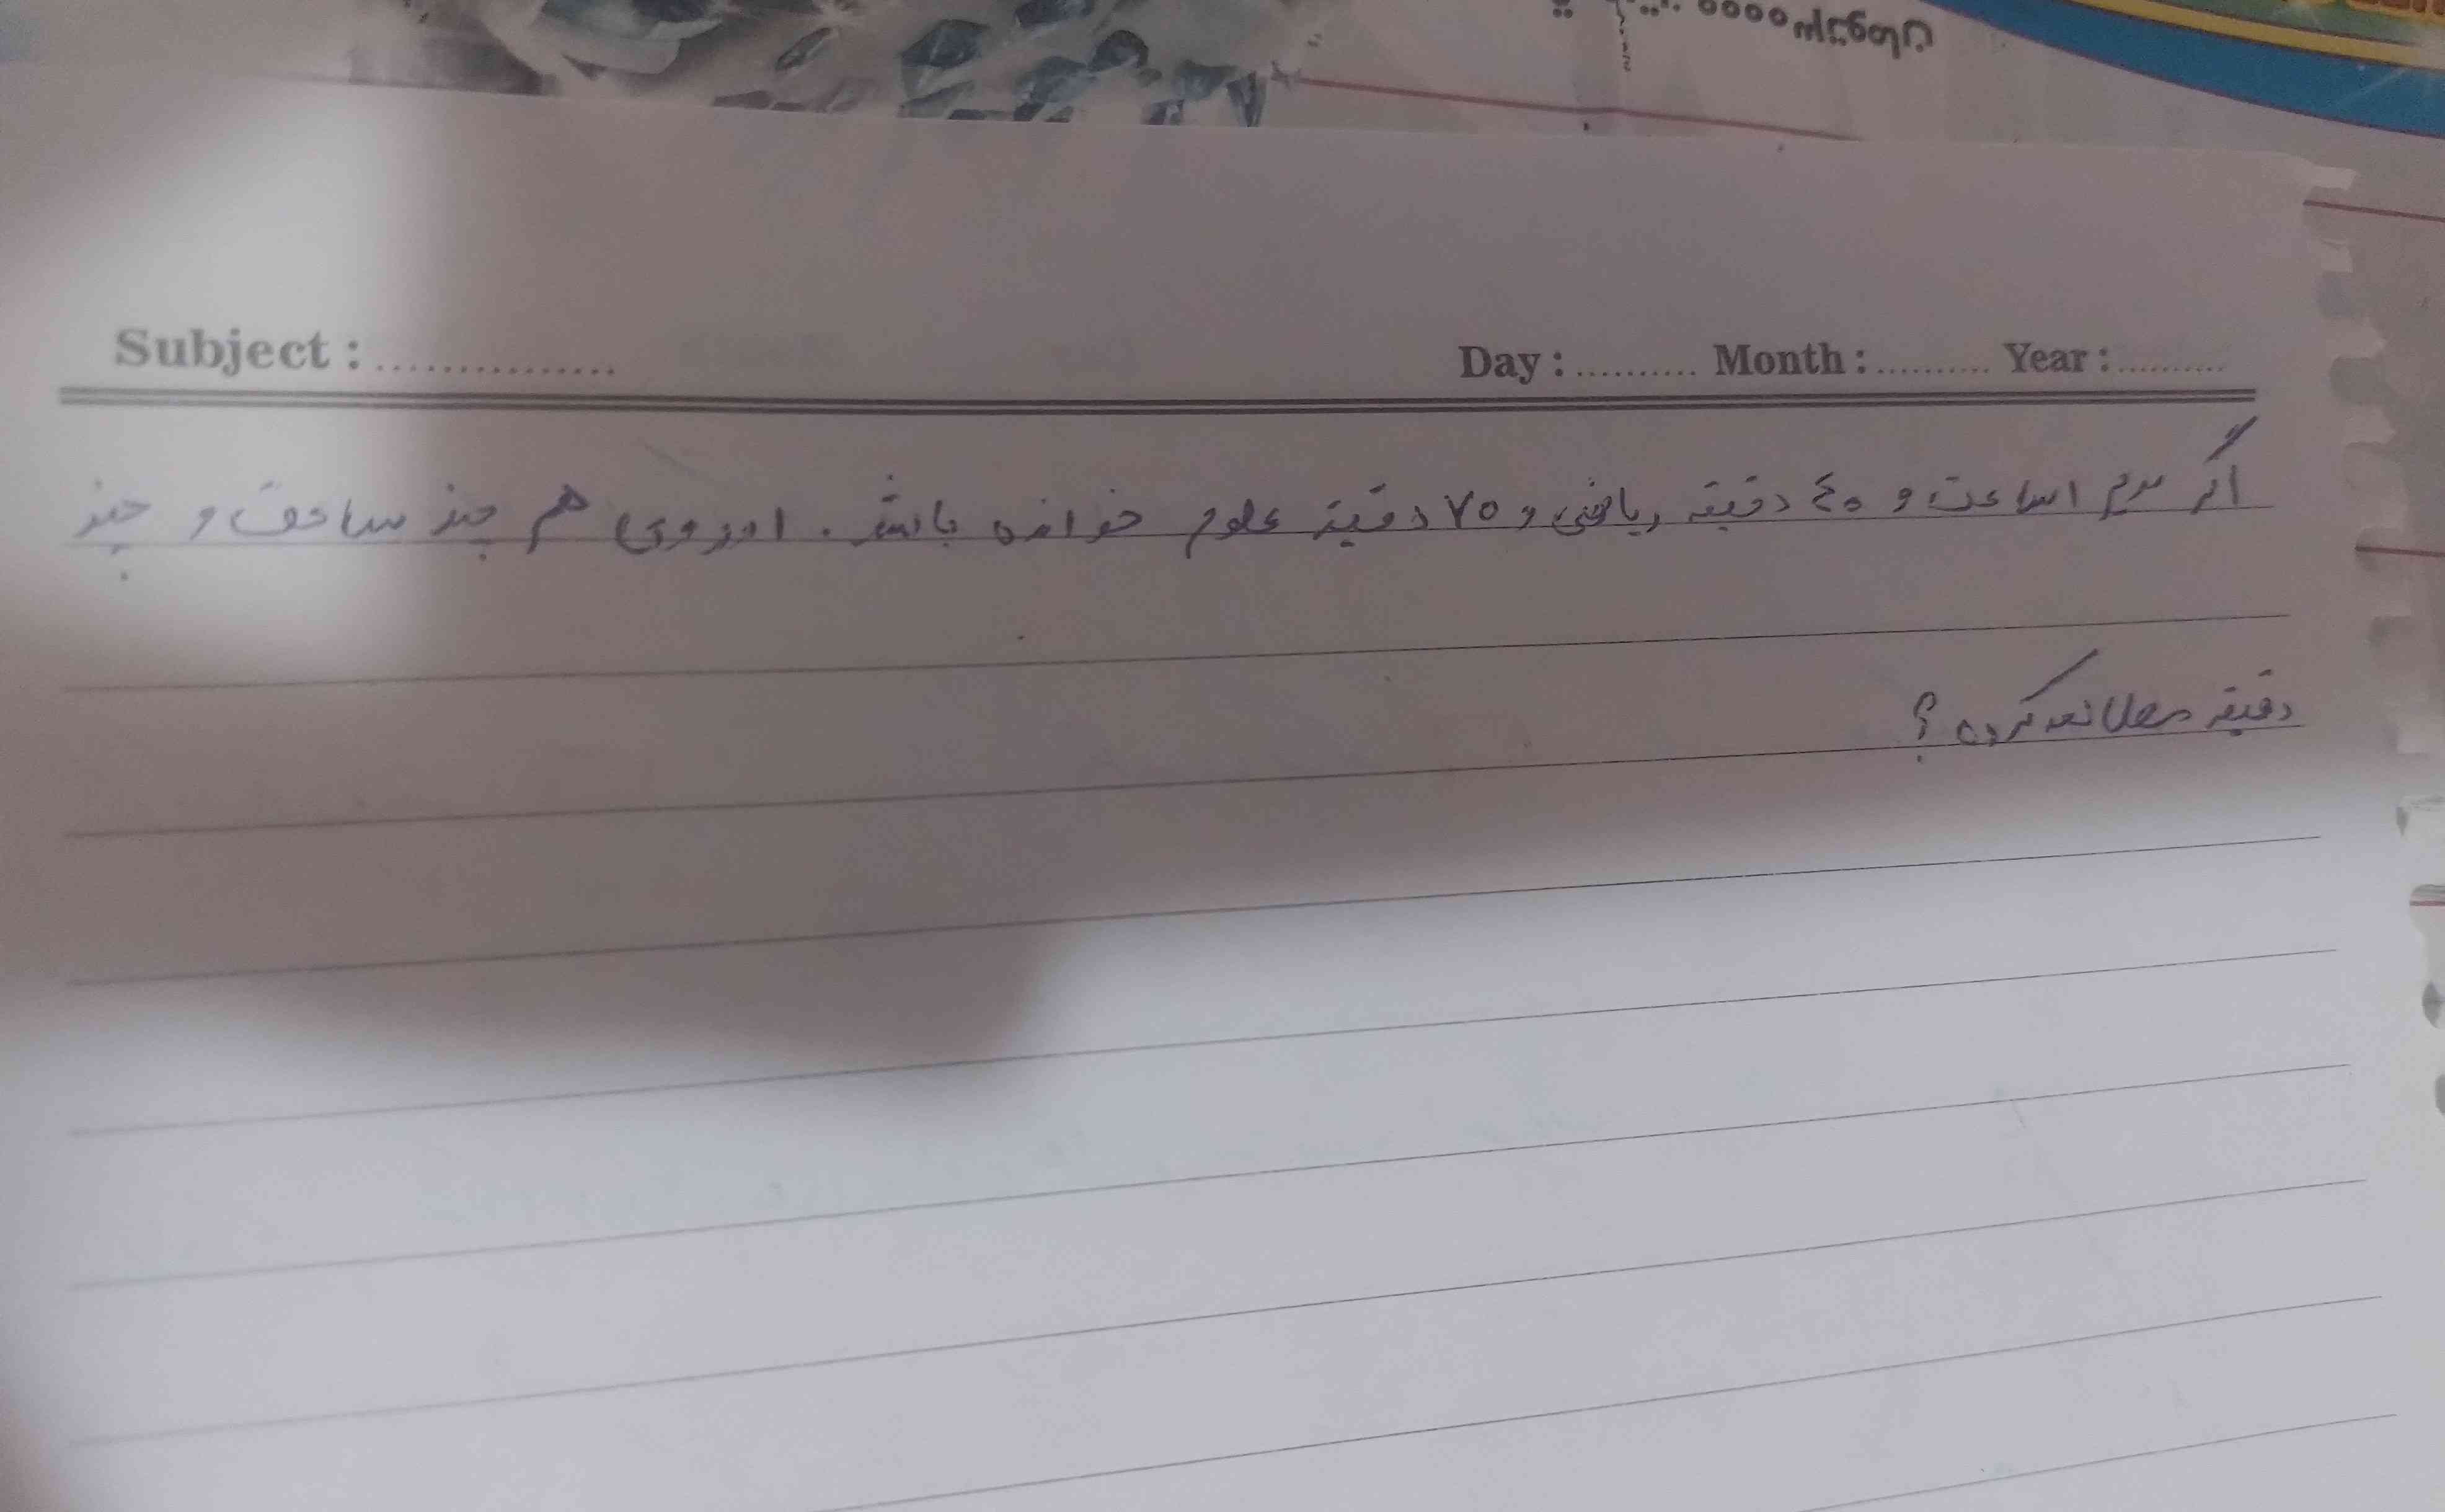 تومان ۵۰۰۰۰
Subject : ............... Day : .......... Month : .......... Year : ..........
اگر مریم ۱ ساعت و ۴۰ دقیقه ریاضی و ۷۵ دقیقه علوم خوانده باشد. او روی هم چند ساعت و چند
دقیقه مطالعه کرده؟